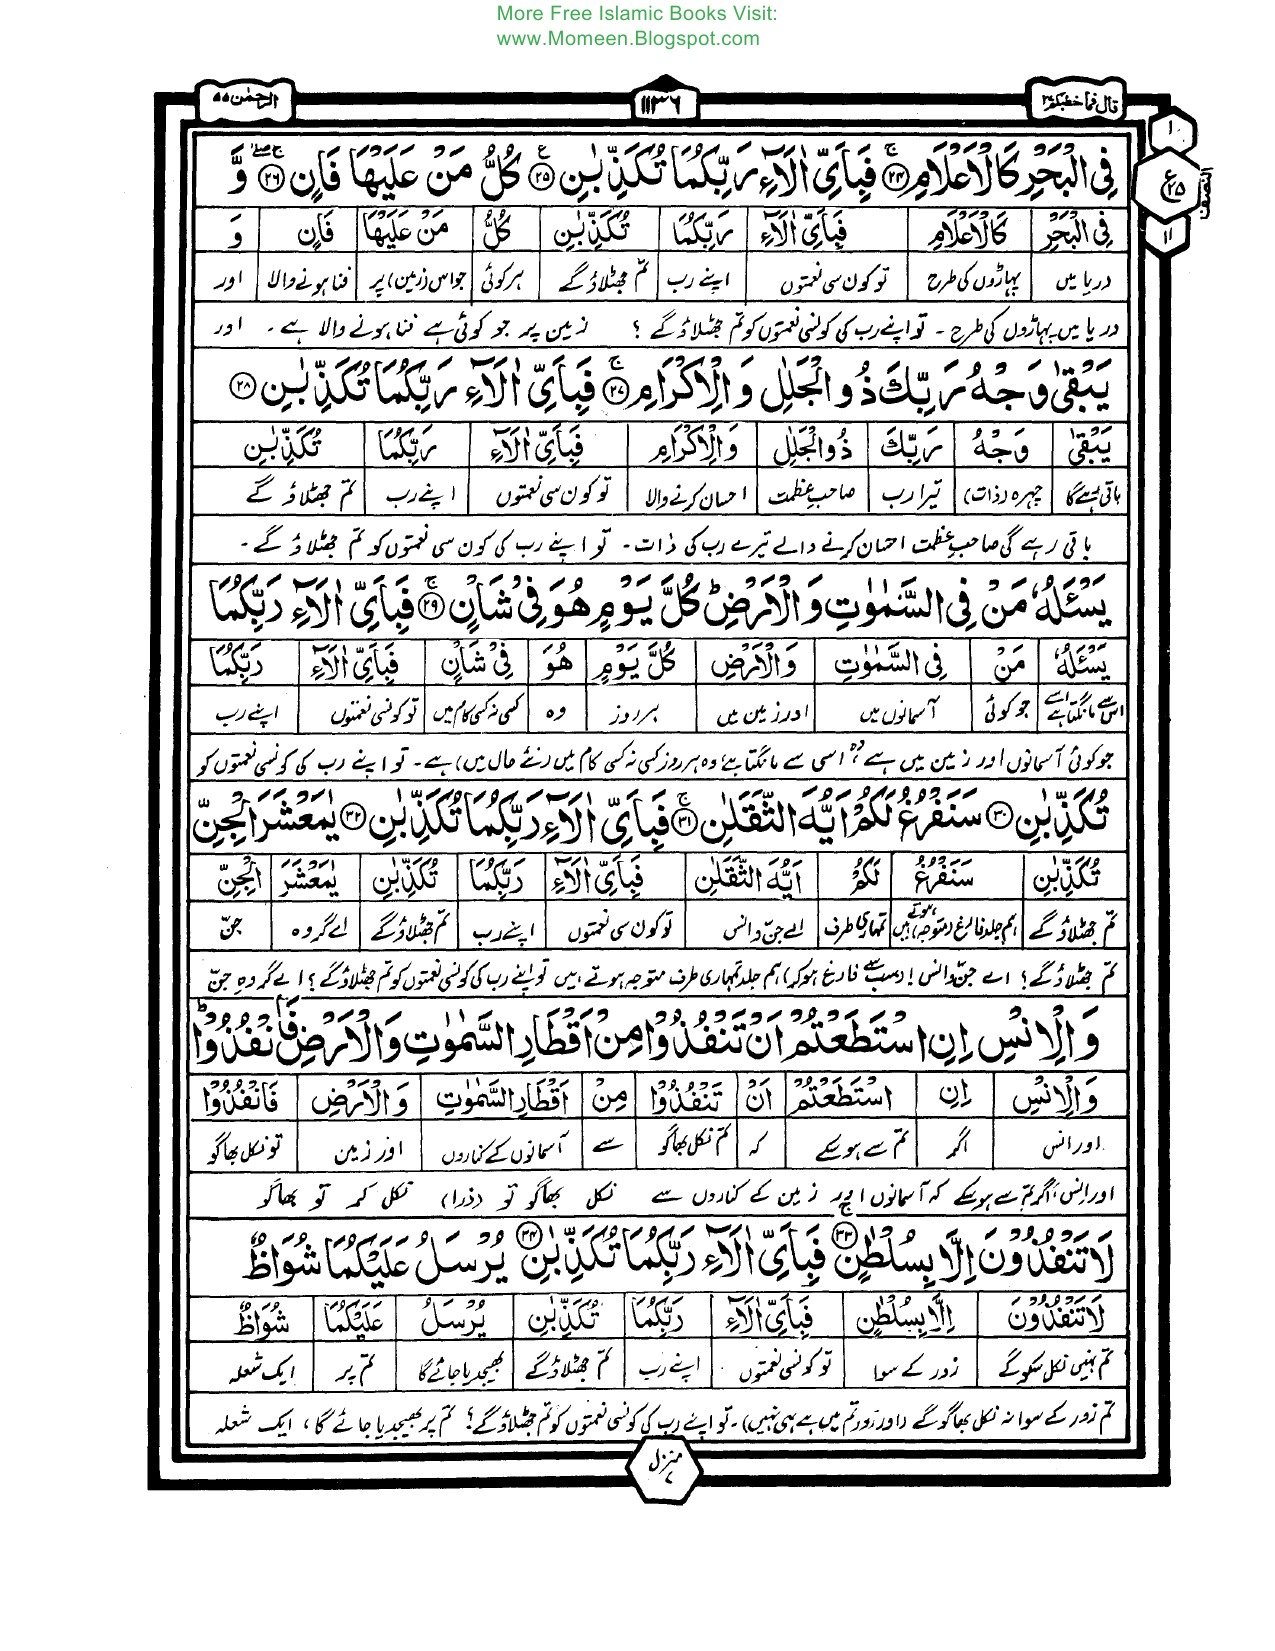 More Free Islamic Books Visit:
www.Momeen.Blogspot.com
قال فما خطبکم ۲۷
۱۱۳۶
الرحمٰن ۵۵
فِي الْبَحْرِ كَالْاَعْلَامِ ﴿۲۴﴾ فَبِاَيِّ اٰلَآءِ رَبِّكُمَا تُكَذِّبٰنِ ﴿۲۵﴾ كُلُّ مَنْ عَلَيْهَا فَانٍ ﴿۲۶﴾ وَّ
۱۰
ع ۲۵
۱۱
النصف
فِي الْبَحْرِ كَالْاَعْلَامِ فَبِاَيِّ اٰلَآءِ رَبِّكُمَا تُكَذِّبٰنِ كُلُّ مَنْ عَلَيْهَا فَانٍ وَّ
دریا میں پہاڑوں کی طرح تو کون سی نعمتوں اپنے رب تم جھٹلاؤ گے ہر کوئی جو اس (زمین) پر فنا ہونے والا اور
دریا میں پہاڑوں کی طرح ۔ تو اپنے رب کی کونسی نعمتوں کو تم جھٹلاؤ گے ؟ زمین پر جو کوئی ہے فنا ہونے والا ہے ۔ اور
يَبْقٰى وَجْهُ رَبِّكَ ذُو الْجَلٰلِ وَالْاِكْرَامِ ﴿۲۷﴾ فَبِاَيِّ اٰلَآءِ رَبِّكُمَا تُكَذِّبٰنِ ﴿۲۸﴾
يَبْقٰى وَجْهُ رَبِّكَ ذُو الْجَلٰلِ وَالْاِكْرَامِ فَبِاَيِّ اٰلَآءِ رَبِّكُمَا تُكَذِّبٰنِ
باقی رہے گا چہرہ (ذات) تیرا رب صاحبِ عظمت احسان کرنے والا تو کون سی نعمتوں اپنے رب تم جھٹلاؤ گے
باقی رہے گی صاحبِ عظمت احسان کرنے والے تیرے رب کی ذات ۔ تو اپنے رب کی کون سی نعمتوں کو تم جھٹلاؤ گے ۔
يَسْئَلُهٗ مَنْ فِي السَّمٰوٰتِ وَالْاَرْضِ كُلَّ يَوْمٍ هُوَ فِيْ شَاْنٍ ﴿۲۹﴾ فَبِاَيِّ اٰلَآءِ رَبِّكُمَا
يَسْئَلُهٗ مَنْ فِي السَّمٰوٰتِ وَالْاَرْضِ كُلَّ يَوْمٍ هُوَ فِيْ شَاْنٍ فَبِاَيِّ اٰلَآءِ رَبِّكُمَا
اس سے مانگتا ہے جو کوئی آسمانوں میں اور زمین میں ہر روز وہ کسی نہ کسی کام میں تو کونسی نعمتوں اپنے رب
جو کوئی آسمانوں اور زمین میں ہے وہ اسی سے مانگتا ہے وہ ہر روز کسی نہ کسی کام میں (نئے حال میں) ہے ۔ تو اپنے رب کی کونسی نعمتوں کو
تُكَذِّبٰنِ ﴿۳۰﴾ سَنَفْرُغُ لَكُمْ اَيُّهَ الثَّقَلٰنِ ﴿۳۱﴾ فَبِاَيِّ اٰلَآءِ رَبِّكُمَا تُكَذِّبٰنِ ﴿۳۲﴾ يٰمَعْشَرَ الْجِنِّ
تُكَذِّبٰنِ سَنَفْرُغُ لَكُمْ اَيُّهَ الثَّقَلٰنِ فَبِاَيِّ اٰلَآءِ رَبِّكُمَا تُكَذِّبٰنِ يٰمَعْشَرَ الْجِنِّ
تم جھٹلاؤ گے ہم جلد فارغ (متوجہ) ہوتے ہیں تمہاری طرف اے جن و انس تو کون سی نعمتوں اپنے رب تم جھٹلاؤ گے اے گروہ جن
تم جھٹلاؤ گے ؟ اے جن و انس ! (سب سے فارغ ہو کر) ہم جلد تمہاری طرف متوجہ ہوتے ہیں تو اپنے رب کی کونسی نعمتوں کو تم جھٹلاؤ گے ؟ اے گروہِ جن
وَالْاِنْسِ اِنِ اسْتَطَعْتُمْ اَنْ تَنْفُذُوْا مِنْ اَقْطَارِ السَّمٰوٰتِ وَالْاَرْضِ فَانْفُذُوْا
وَالْاِنْسِ اِنِ اسْتَطَعْتُمْ اَنْ تَنْفُذُوْا مِنْ اَقْطَارِ السَّمٰوٰتِ وَالْاَرْضِ فَانْفُذُوْا
اور انس اگر تم سے ہو سکے کہ تم نکل بھاگو سے آسمانوں کے کناروں اور زمین تو نکل بھاگو
اور انس ! اگر تم سے ہو سکے کہ آسمانوں اور زمین کے کناروں سے نکل بھاگو تو (ذرا) نکل کر تو بھاگو
لَا تَنْفُذُوْنَ اِلَّا بِسُلْطٰنٍ ﴿۳۳﴾ فَبِاَيِّ اٰلَآءِ رَبِّكُمَا تُكَذِّبٰنِ ﴿۳۴﴾ يُرْسَلُ عَلَيْكُمَا شُوَاظٌ
لَا تَنْفُذُوْنَ اِلَّا بِسُلْطٰنٍ فَبِاَيِّ اٰلَآءِ رَبِّكُمَا تُكَذِّبٰنِ يُرْسَلُ عَلَيْكُمَا شُوَاظٌ
تم نہیں نکل سکو گے زور کے سوا تو کونسی نعمتوں اپنے رب تم جھٹلاؤ گے بھیجدیا جائے گا تم پر ایک شعلہ
تم زور کے سوا نہ نکل بھاگو گے (اور زور تم میں ہے ہی نہیں) ۔ تو اپنے رب کی کونسی نعمتوں کو تم جھٹلاؤ گے ؟ تم پر بھیجدیا جائے گا ، ایک شعلہ
منزل ۷